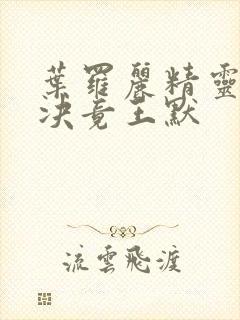 葉羅麗精靈
決竟王默
流雲飛渡